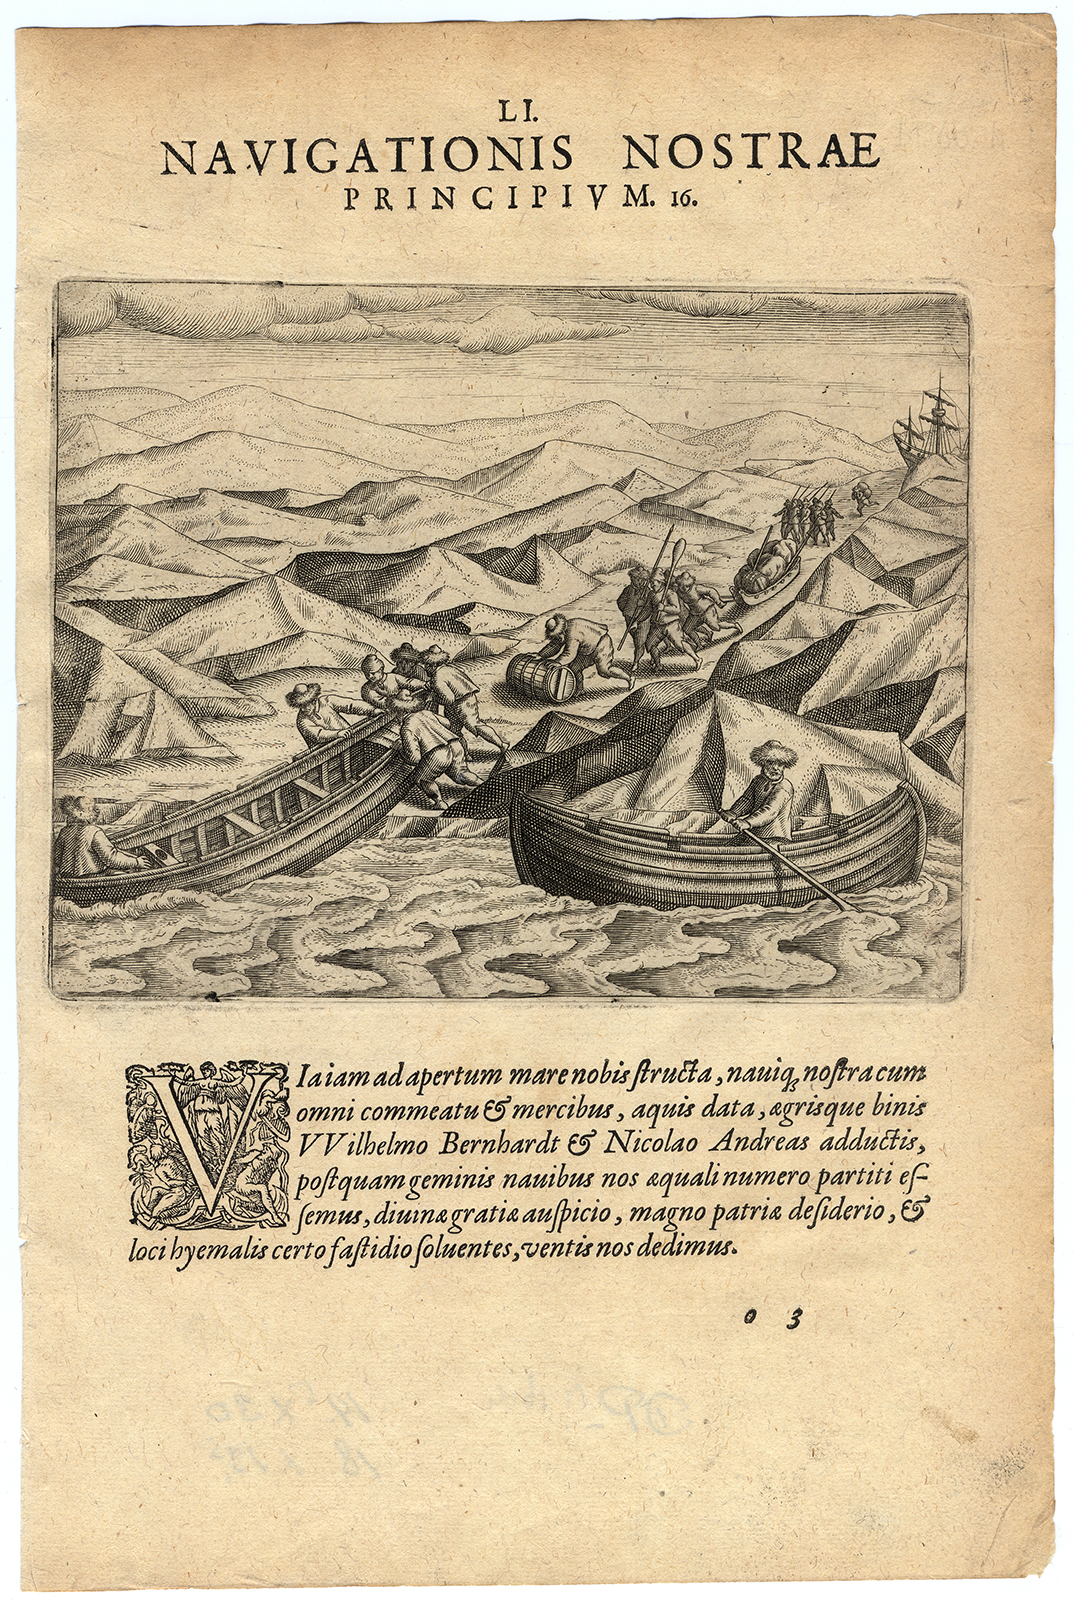 LI.
NAVIGATIONIS NOSTRAE
PRINCIPIVM. 16.
VIa iam ad apertum mare nobis structa, nauiq; nostra cum
omni commeatu & mercibus, aquis data, ægrisque binis
VVilhelmo Bernhardt & Nicolao Andreas adductis,
postquam geminis nauibus nos æquali numero partiti es-
semus, diuinæ gratiæ auspicio, magno patriæ desiderio, &
loci hyemalis certo fastidio soluentes, ventis nos dedimus.
o 3